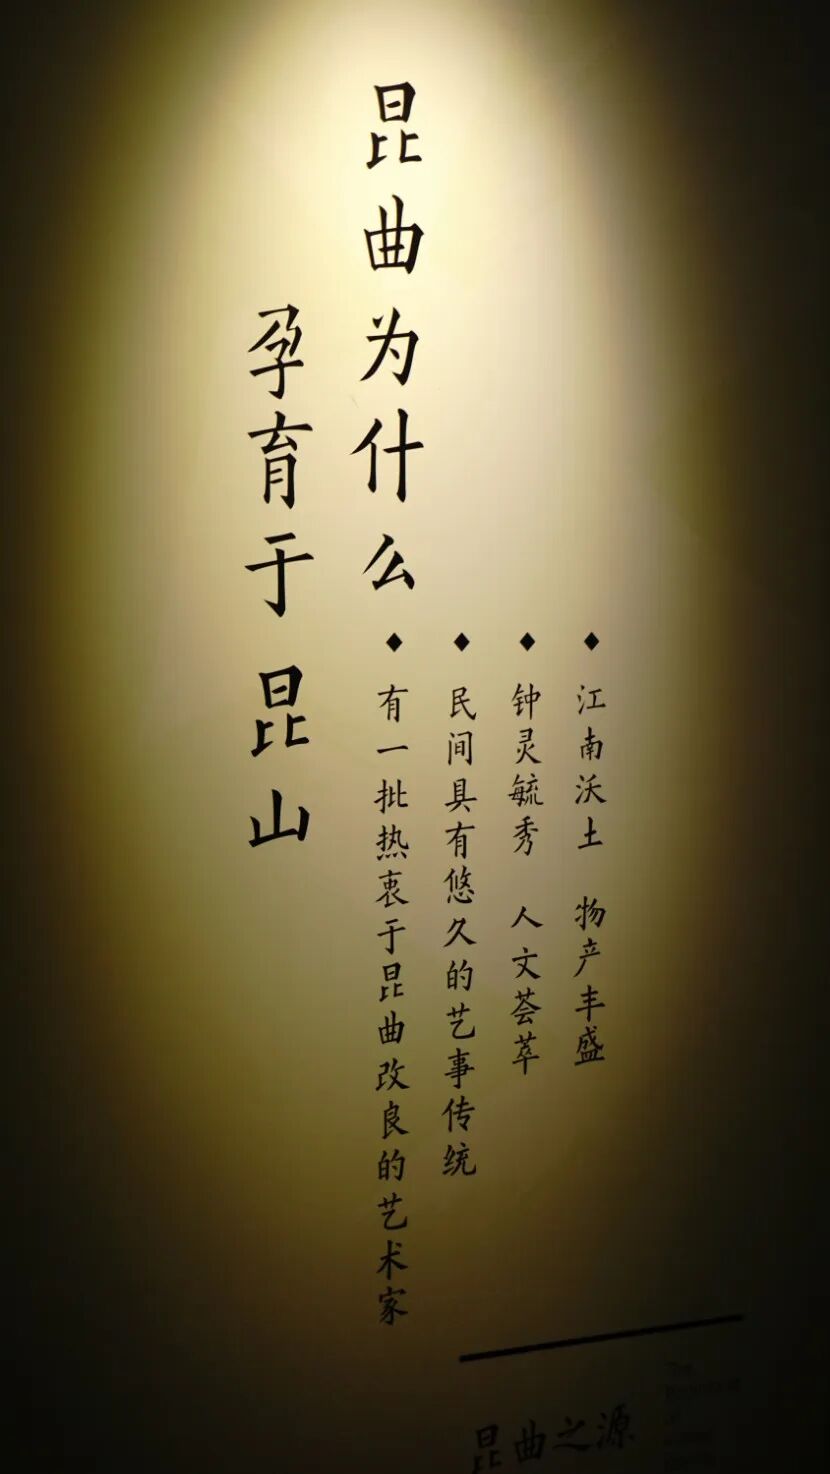 昆曲为什么
孕育于昆山
◆ 江南沃土 物产丰盛
◆ 钟灵毓秀 人文荟萃
◆ 民间具有悠久的艺事传统
◆ 有一批热衷于昆曲改良的艺术家
昆曲之源
The